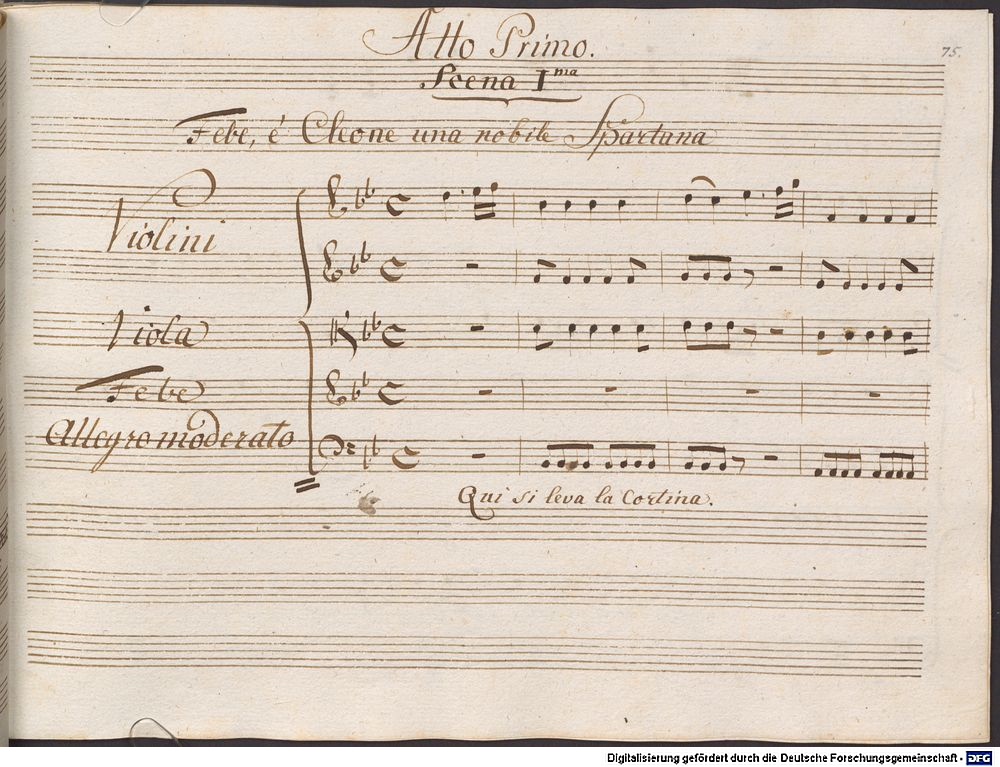 Atto Primo.
75.
Scena I.ma
Febe, é Cleone una nobile Spartana
Violini
Viola
Febe
Allegro moderato
Qui si leva la Cortina.
Digitalisierung gefördert durch die Deutsche Forschungsgemeinschaft - DFG